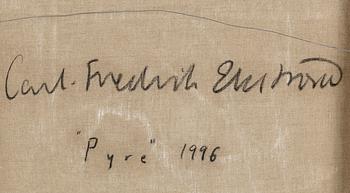 Carl-Fredrik Ekström
"Pyre" 1996